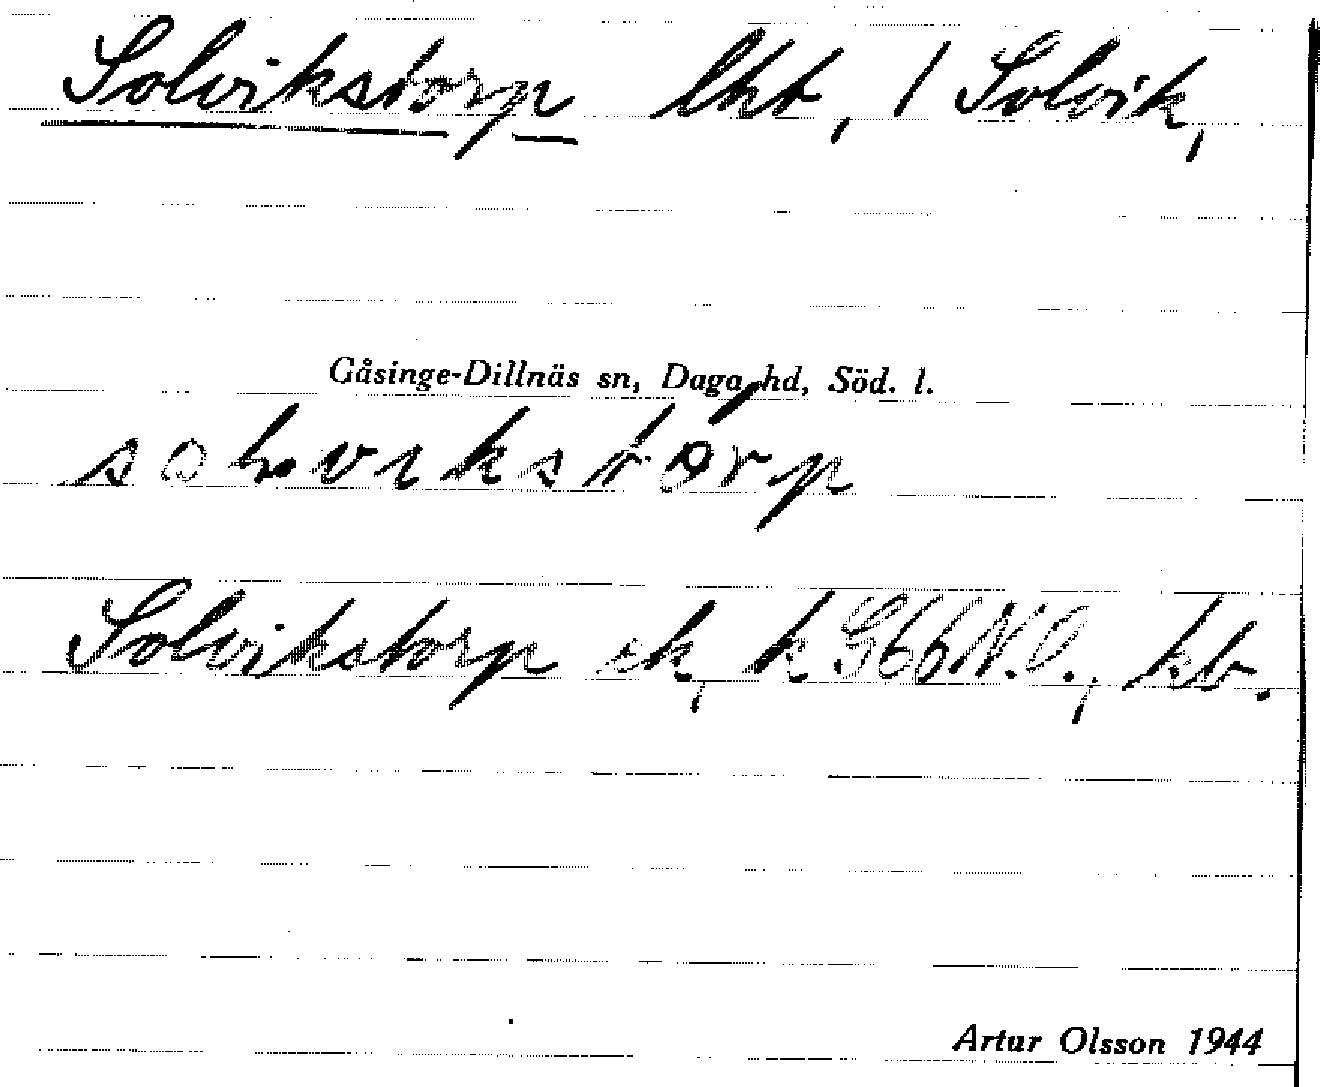 Solvikstorp lht, / Solvik,
Gåsinge-Dillnäs sn, Daga hd, Söd. l.
Solvikstorp ek, k G66N.O., kb.
Artur Olsson 1944